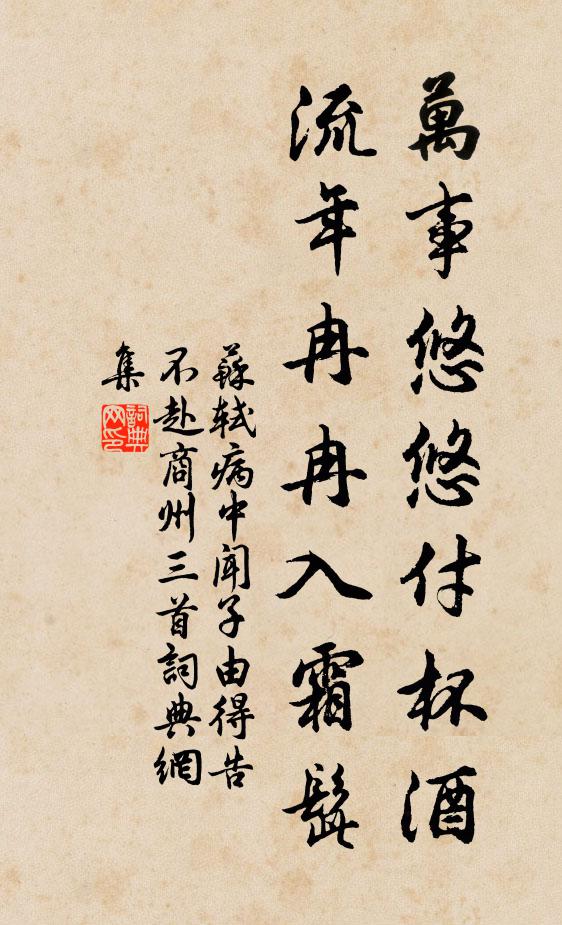 萬事悠悠付杯酒
流年冉冉入霜髭
蘇軾病中聞子由得告
不赴商州三首詞典網
集
詞典网印